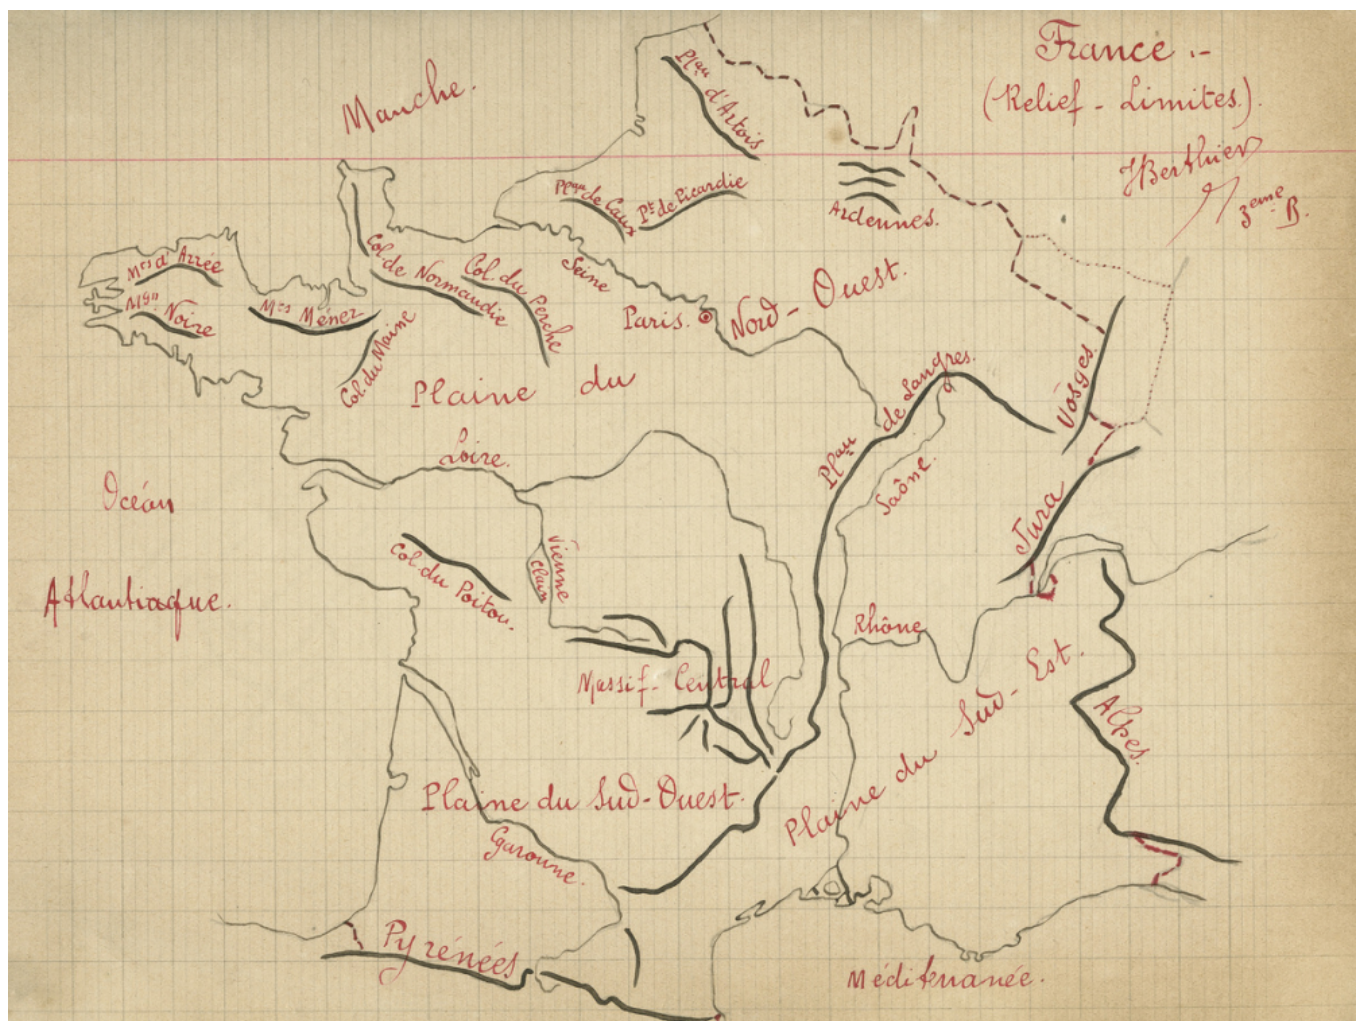 France.-
(Relief - Limites.)
JBerthier
3eme B.
Manche.
Plau d'Artois
Plau de Caux
Pt de Picardie
Ardennes.
Mts d'Arrée
Mgn Noire
Mts Ménez
Col. de Normandie
Col. du Perche
Col. du Maine
Seine
Paris.
Plaine du Nord-Ouest.
Plau de Langres.
Vosges.
Loire.
Saône.
Jura
Océan
Atlantiaque.
Col. du Poitou.
Vienne
Clain
Rhône
Massif-Central
Alpes.
Plaine du Sud-Est.
Plaine du Sud-Ouest.
Garonne.
Pyrénées
Méditerranée.